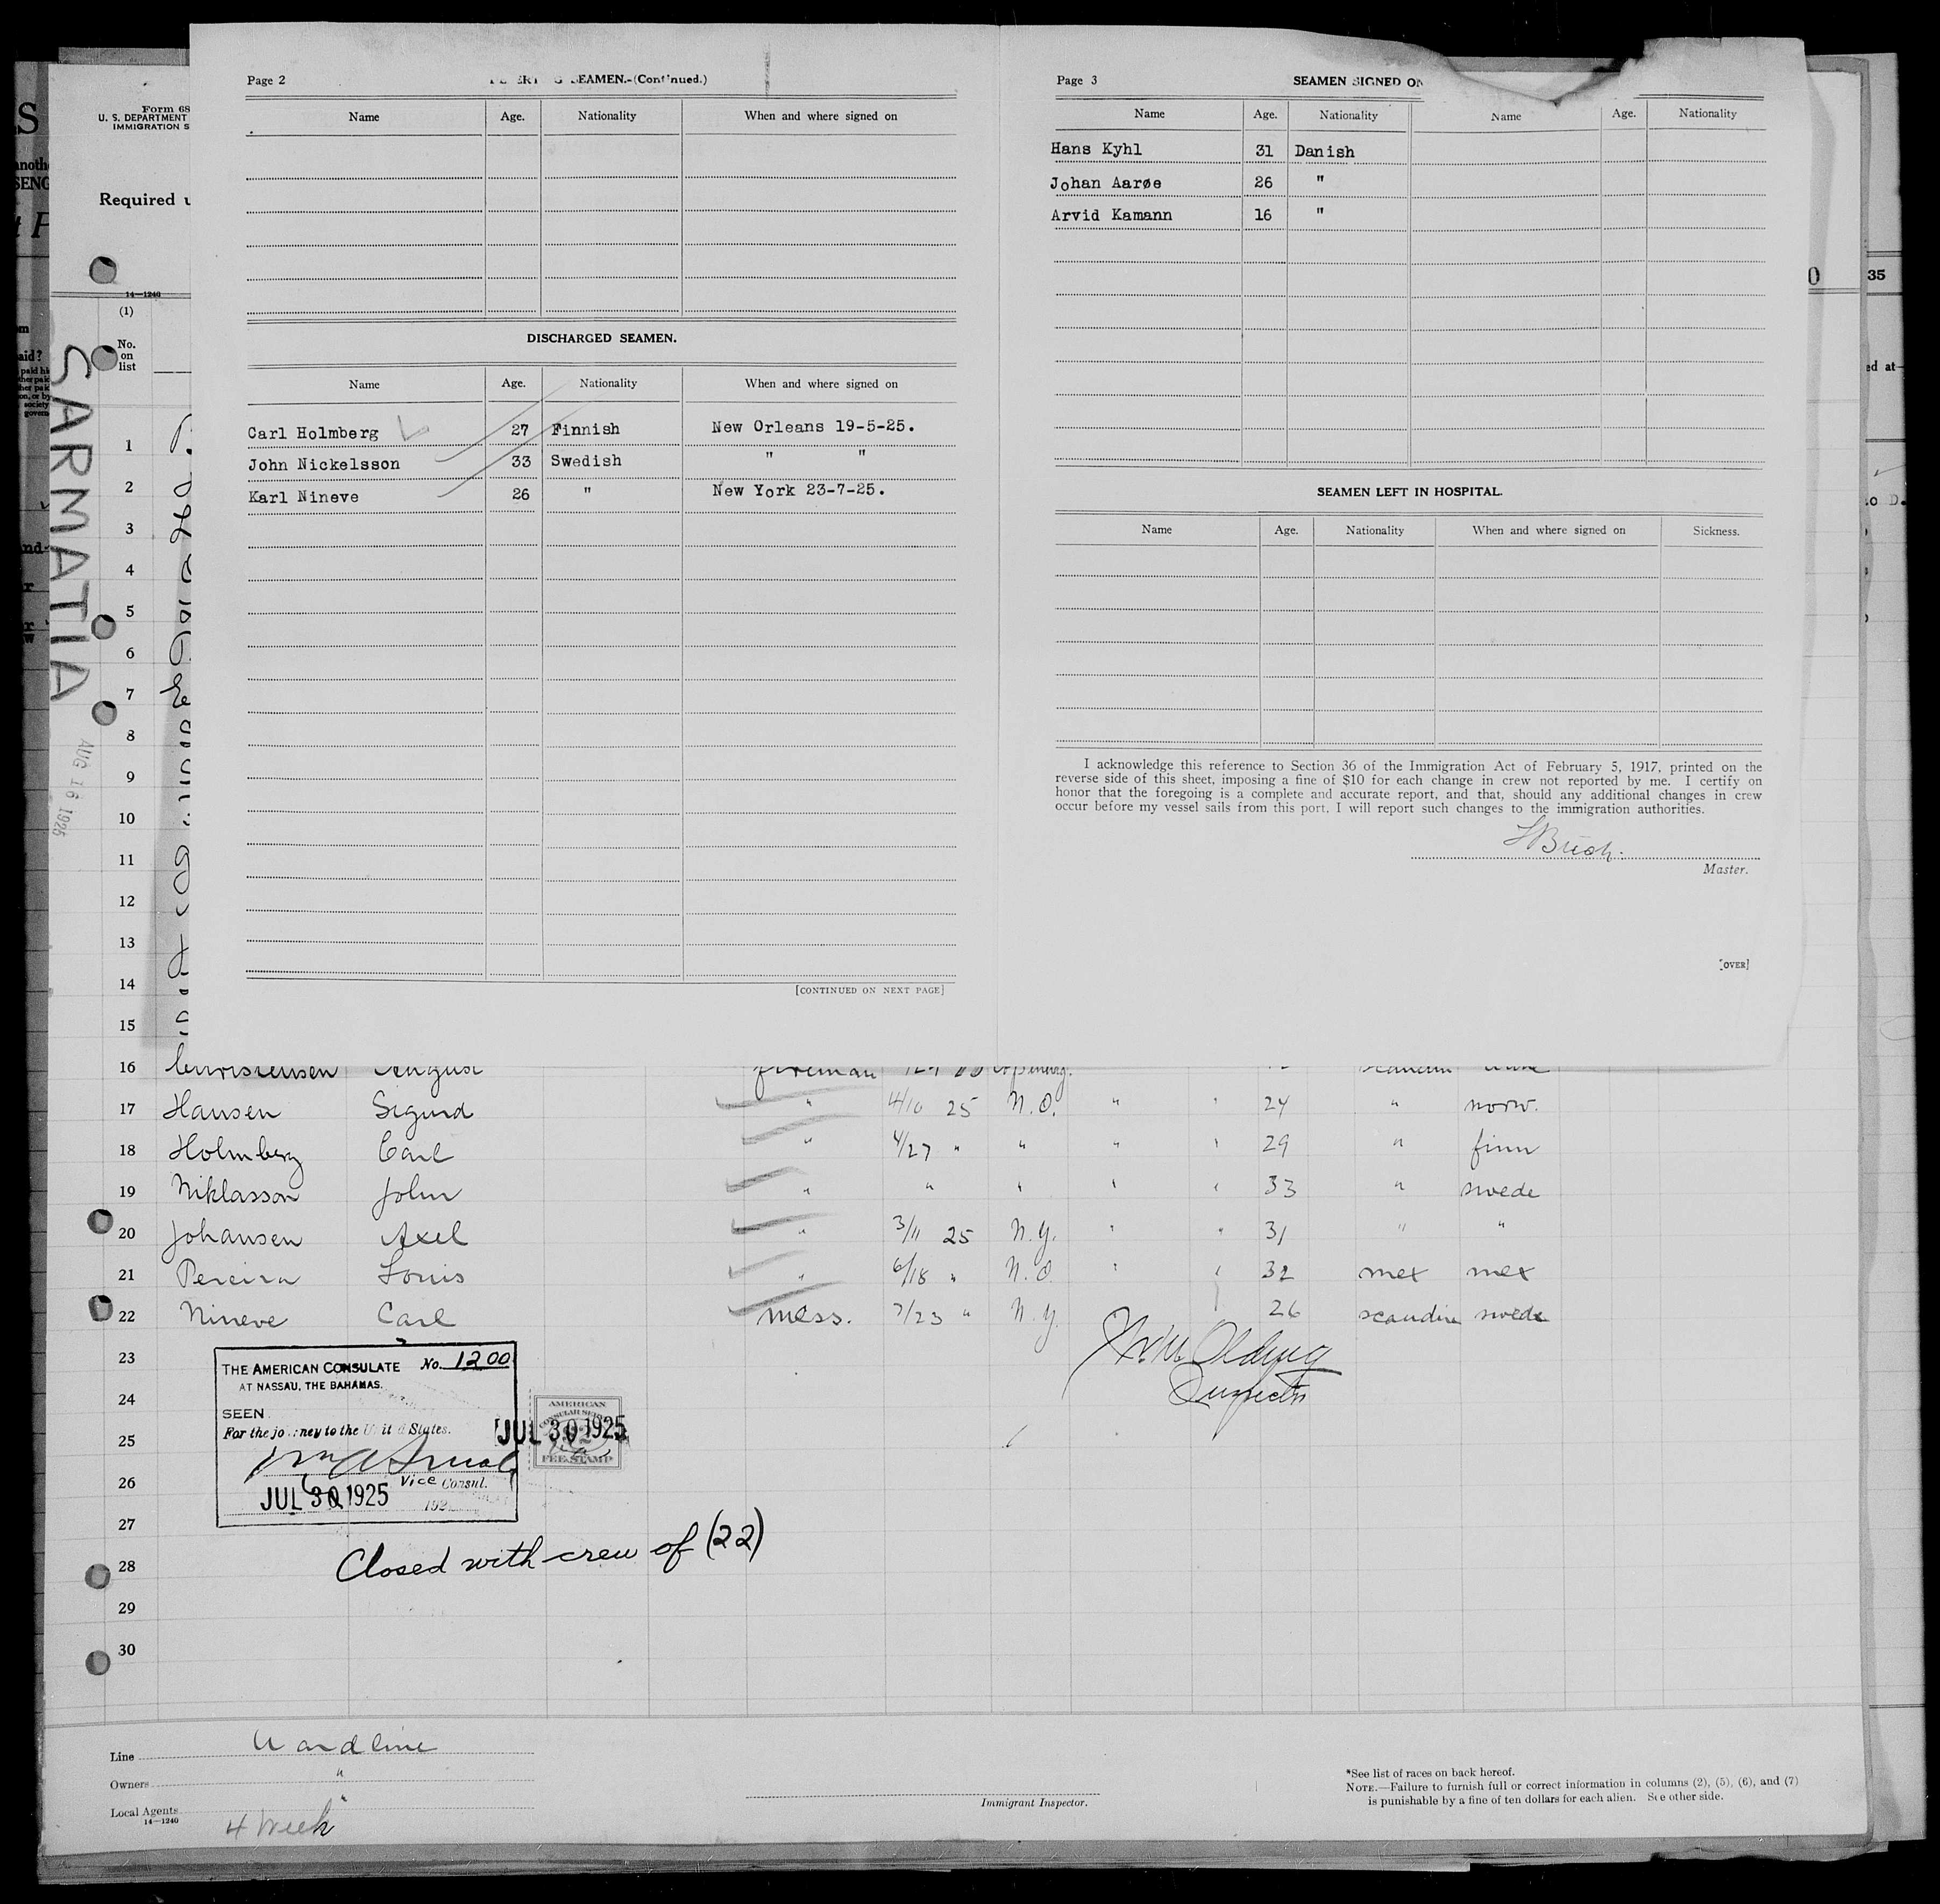 Page 2
SEAMEN.-(Continued.)
Name Age. Nationality When and where signed on
DISCHARGED SEAMEN.
Name Age. Nationality When and where signed on
Carl Holmberg 27 Finnish New Orleans 19-5-25.
John Nickelsson 33 Swedish " "
Karl Nineve 26 " New York 23-7-25.
[CONTINUED ON NEXT PAGE]
Page 3 SEAMEN SIGNED ON
Name Age. Nationality Name Age. Nationality
Hans Kyhl 31 Danish
Johan Aarøe 26 "
Arvid Kamann 16 "
SEAMEN LEFT IN HOSPITAL.
Name Age. Nationality When and where signed on Sickness.
I acknowledge this reference to Section 36 of the Immigration Act of February 5, 1917, printed on the
reverse side of this sheet, imposing a fine of $10 for each change in crew not reported by me. I certify on
honor that the foregoing is a complete and accurate report, and that, should any additional changes in crew
occur before my vessel sails from this port, I will report such changes to the immigration authorities.
Master.
[OVER]
Form 68
U. S. DEPARTMENT
IMMIGRATION S
Required u
14—1240
(1)
No.
on
list
SARMATIA
AUG 16 1925
35
ed at
1
2
3
4
5
6
7
8
9
10
11
12
13
14
15
16 Christensen August fireman
17 Hansen Sigurd " 4/10 25 N.O. " " 24 " norw.
18 Holmberg Carl " 4/27 " " " " 29 " finn
19 Niklasson John " " " " " 33 " swede
20 Johansen Axel " 3/11 25 N.Y. " " 31 " "
21 Pereira Louis " 6/18 " N.O. " " 32 mex mex
22 Nineve Carl mess. 7/23 " N.Y. 26 scandin swede
23
24
25
26
27
28
29
30
Inspector
THE AMERICAN CONSULATE No. 1200
AT NASSAU, THE BAHAMAS.
SEEN
For the journey to the United States.
Vice Consul.
JUL 30 1925
192
AMERICAN
CONSULAR SERVICE
JUL 30 1925
FEE STAMP
Closed with crew of (22)
Line Wardline
Owners "
Local Agents "
14—1240
4 Week
Immigrant Inspector.
*See list of races on back hereof.
NOTE.—Failure to furnish full or correct information in columns (2), (5), (6), and (7)
is punishable by a fine of ten dollars for each alien. See other side.